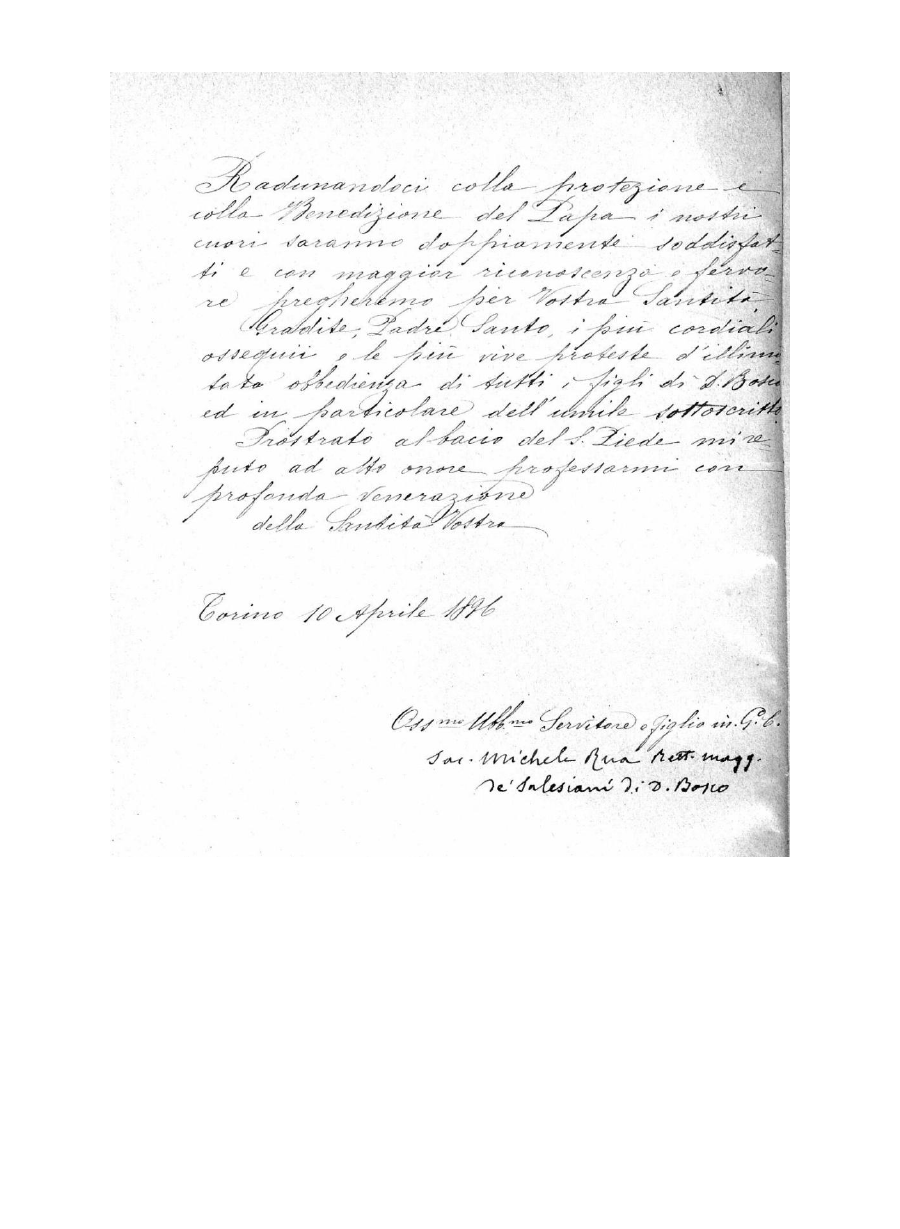 Radunandoci colla protezione e
colla Benedizione del Papa i nostri
cuori saranno doppiamente soddisfat-
ti e con maggior riconoscenza e fervo-
re pregheremo per Vostra Santità.
Gradite, Padre Santo, i più cordiali
ossequii e le più vive proteste d'illimi-
tata obbedienza di tutti i figli di D. Bosco
ed in particolare dell'umile sottoscritto.
Prostrato al bacio del S. Piede mi re-
puto ad alto onore professarmi con
profonda venerazione
della Santità Vostra
Torino 10 Aprile 1896
Oss.mo Ubb.mo Servitore e figlio in G. C.
Sac. Michele Rua Rett. magg.
de' Salesiani di D. Bosco